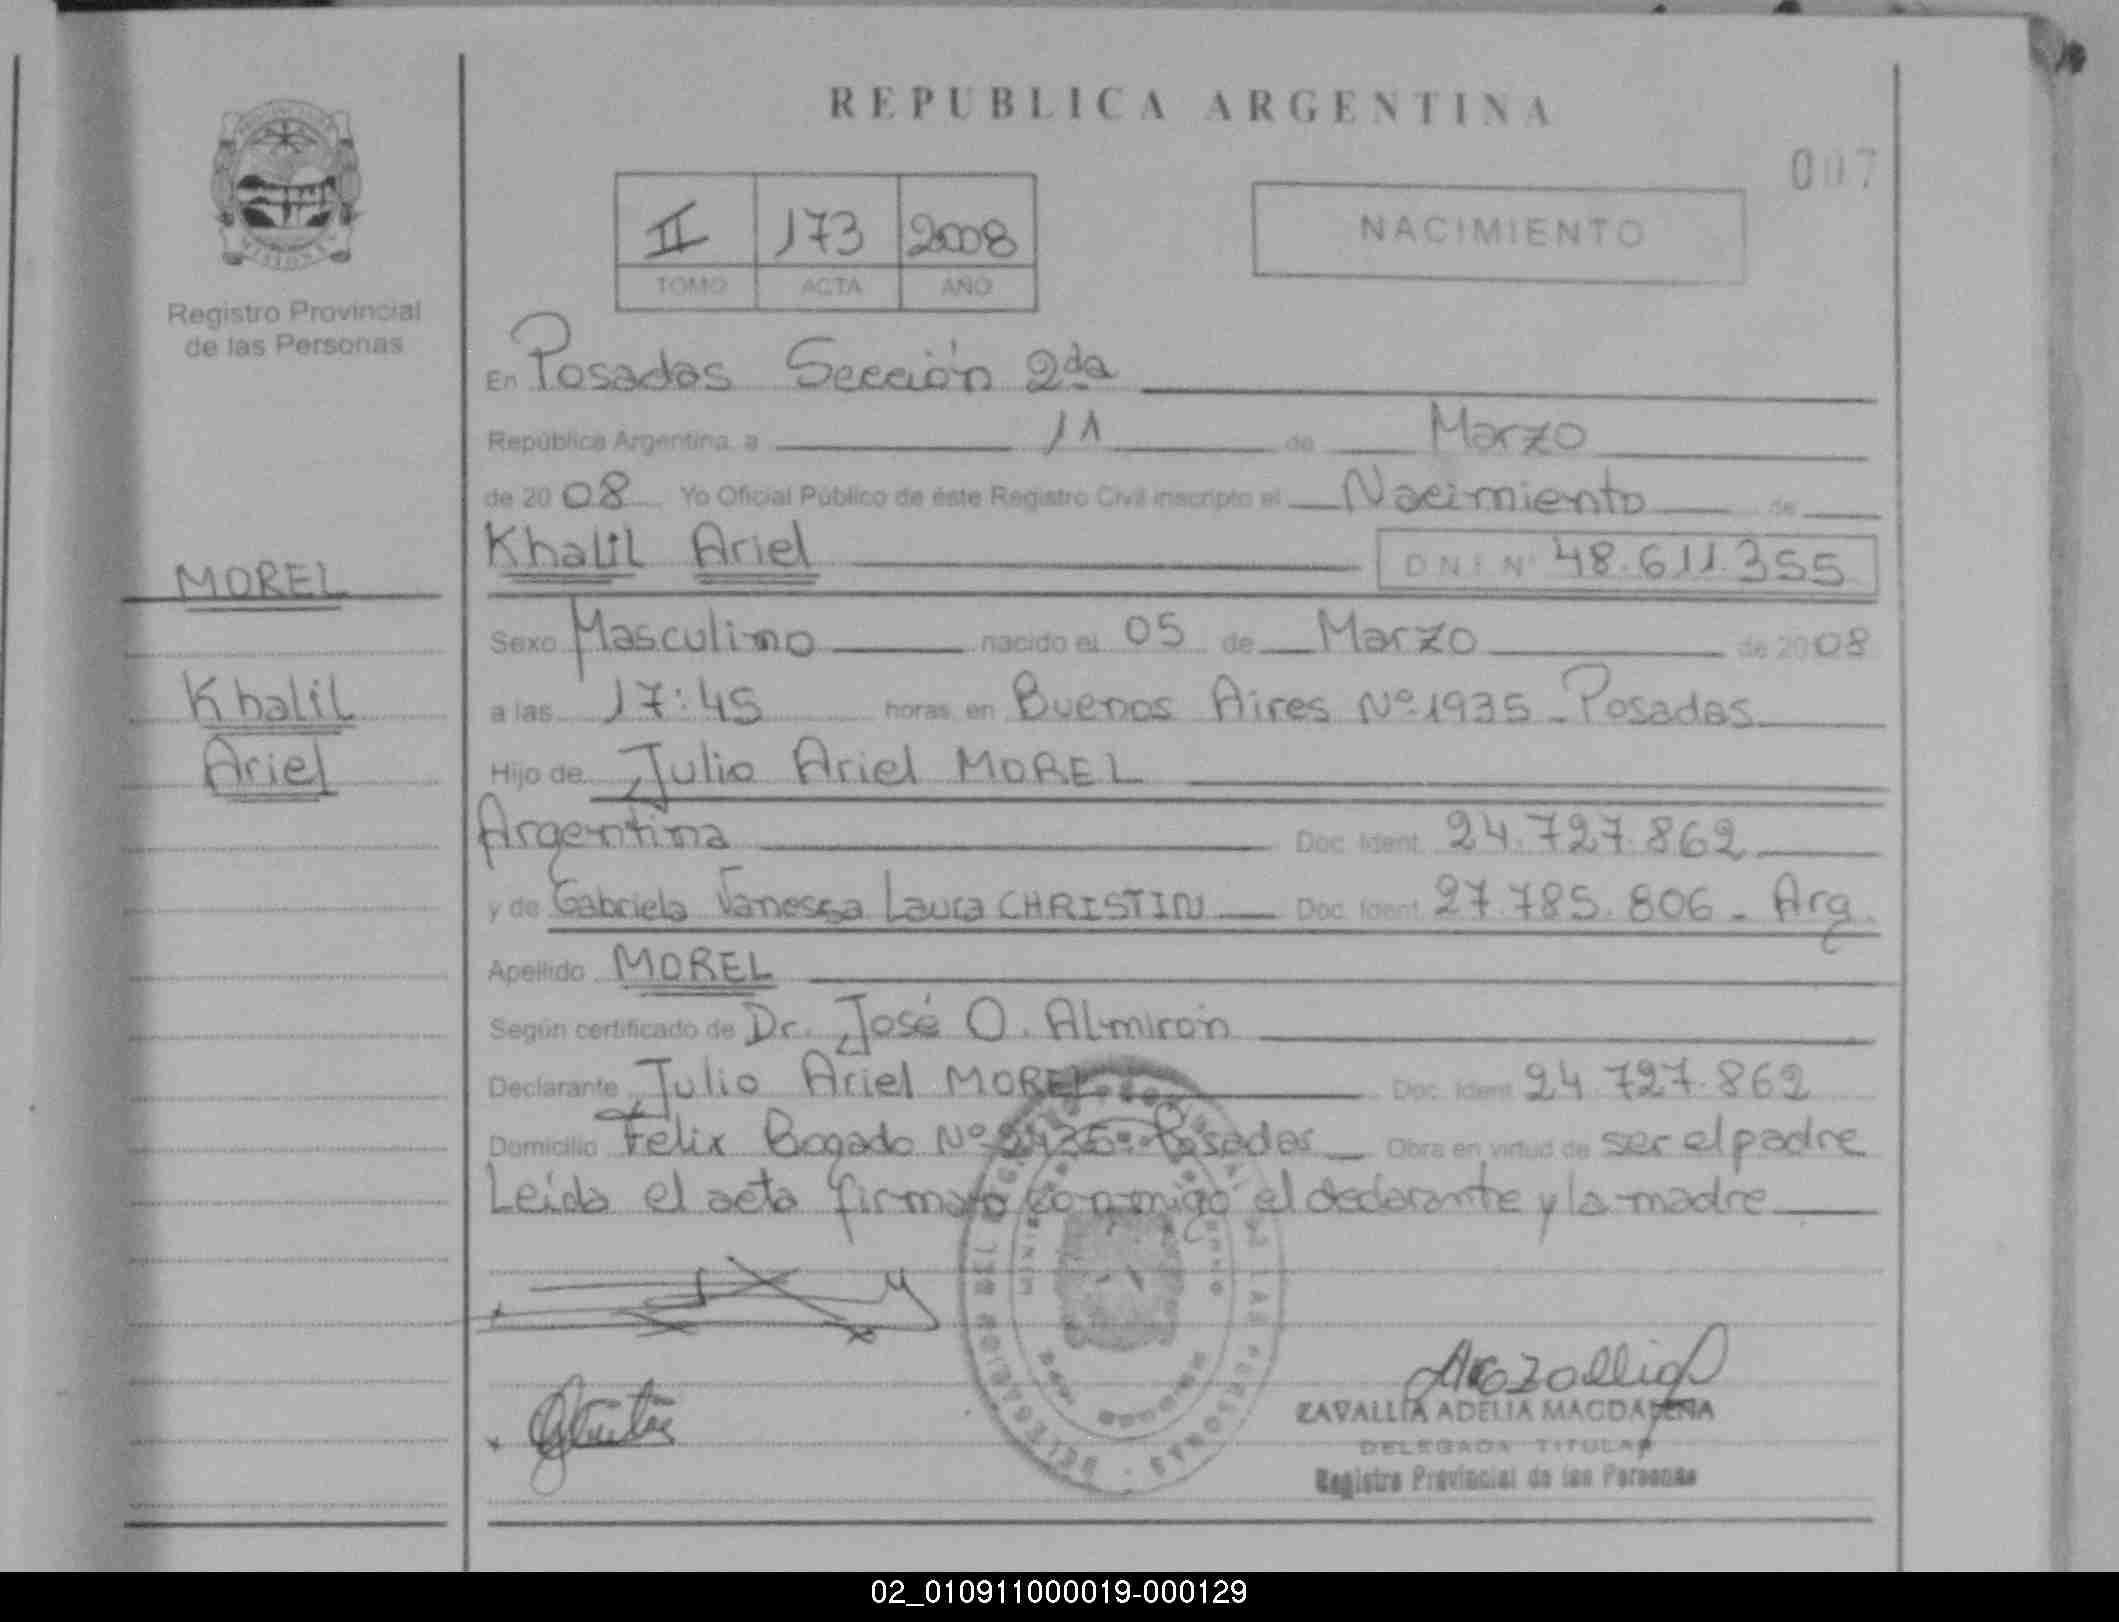 REPUBLICA ARGENTINA
007
II 173 2008
TOMO ACTA AÑO
NACIMIENTO
Registro Provincial
de las Personas
En Posadas Sección 2da
República Argentina, a 11 de Marzo
de 2008 Yo Oficial Público de éste Registro Civil inscripto el Nacimiento de
Khalil Ariel D N I N° 48.611.355
MOREL
Sexo Masculino nacido el 05 de Marzo de 2008
Khalil
a las 17:45 horas en Buenos Aires Nº 1935 - Posadas
Ariel
Hijo de Julio Ariel MOREL
Argentina Doc. Ident. 24.727.862
y de Gabriela Vanessa Laura CHRISTIN Doc. Ident. 27.785.806 - Arg.
Apellido MOREL
Según certificado de Dr. José O. Almirón
Declarante Julio Ariel MOREL Doc. Ident. 24.727.862
Domicilio Felix Bogado Nº Posadas Obra en virtud de ser el padre
Leída el acta firmaro conmigo el declarante y la madre
ZAVALLIA ADELIA MAGDALENA
DELEGADA TITULAR
Registro Provincial de las Personas
02_010911000019-000129